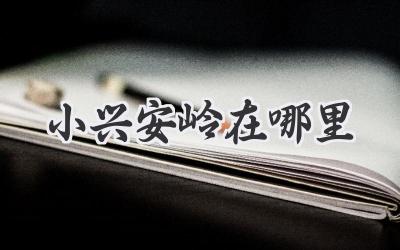 小兴安岭在哪里